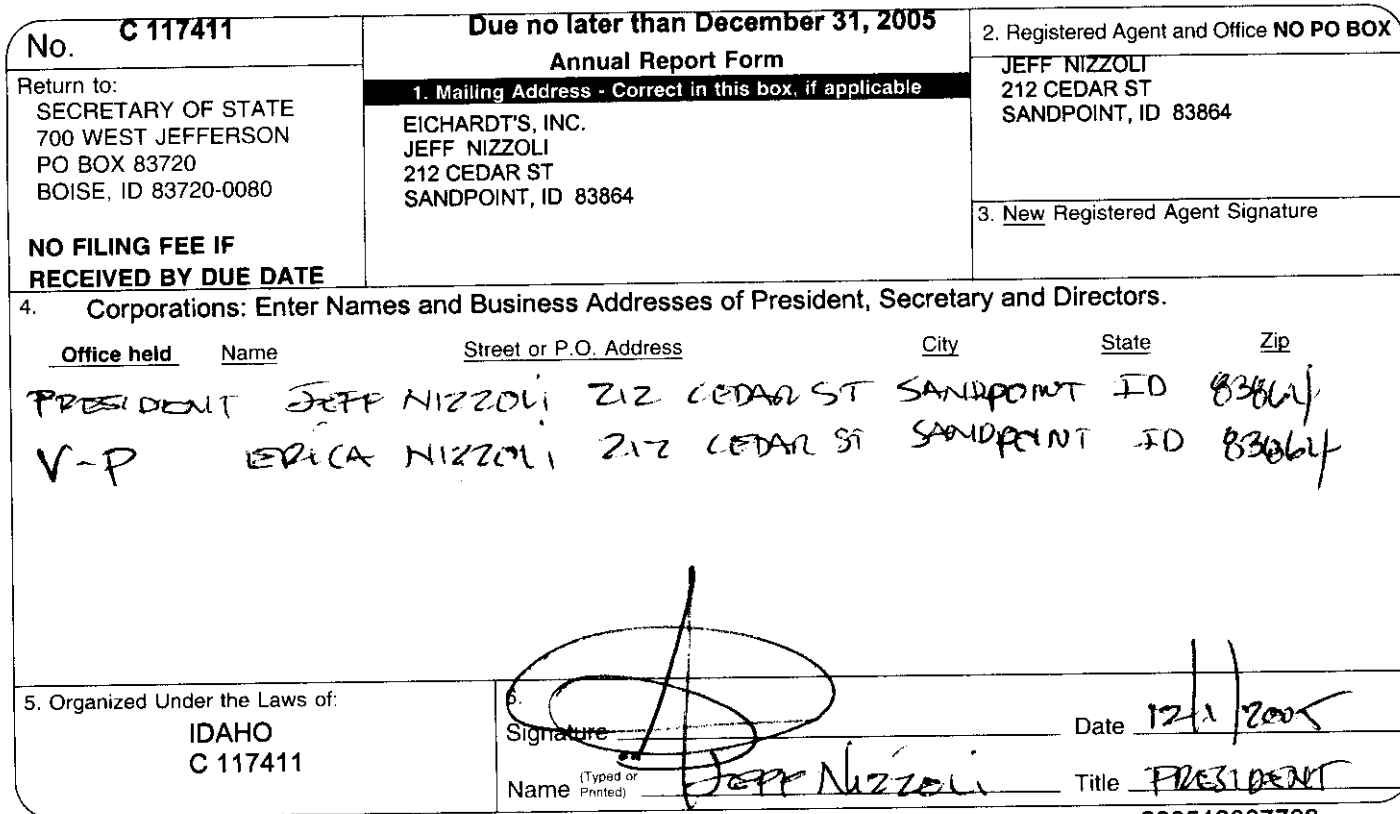 No. C 117411
Return to:
SECRETARY OF STATE
700 WEST JEFFERSON
PO BOX 83720
BOISE, ID 83720-0080
NO FILING FEE IF
RECEIVED BY DUE DATE
Due no later than December 31, 2005
Annual Report Form
1. Mailing Address - Correct in this box, if applicable
EICHARDT'S, INC.
JEFF NIZZOLI
212 CEDAR ST
SANDPOINT, ID 83864
2. Registered Agent and Office NO PO BOX
JEFF NIZZOLI
212 CEDAR ST
SANDPOINT, ID 83864
3. New Registered Agent Signature
4. Corporations: Enter Names and Business Addresses of President, Secretary and Directors.
Office held Name Street or P.O. Address City State Zip
PRESIDENT JEFF NIZZOLI 212 CEDAR ST SANDPOINT ID 83864
V-P ERICA NIZZOLI 212 CEDAR ST SANDPOINT ID 83864
5. Organized Under the Laws of:
IDAHO
C 117411
6.
Signature Date 12/1/2005
Name (Typed or Printed) JEFF NIZZOLI Title PRESIDENT